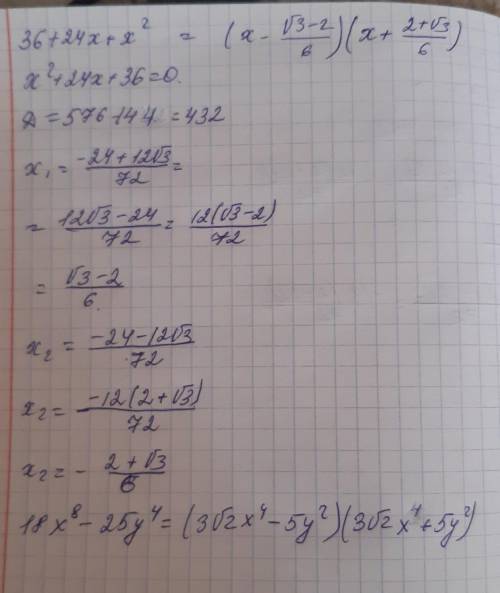 36+24x+x² = (x - (√3-2)/6)(x + (2+√3)/6)
x²+24x+36=0.
D = 576-144 = 432
x₁ = (-24+12√3)/72 =
= (12√3-24)/72 = 12(√3-2)/72
= (√3-2)/6.
x₂ = (-24-12√3)/72
x₂ = -12(2+√3)/72
x₂ = - (2+√3)/6
18x⁸ - 25y⁴ = (3√2x⁴ - 5y²)(3√2x⁴ + 5y²)